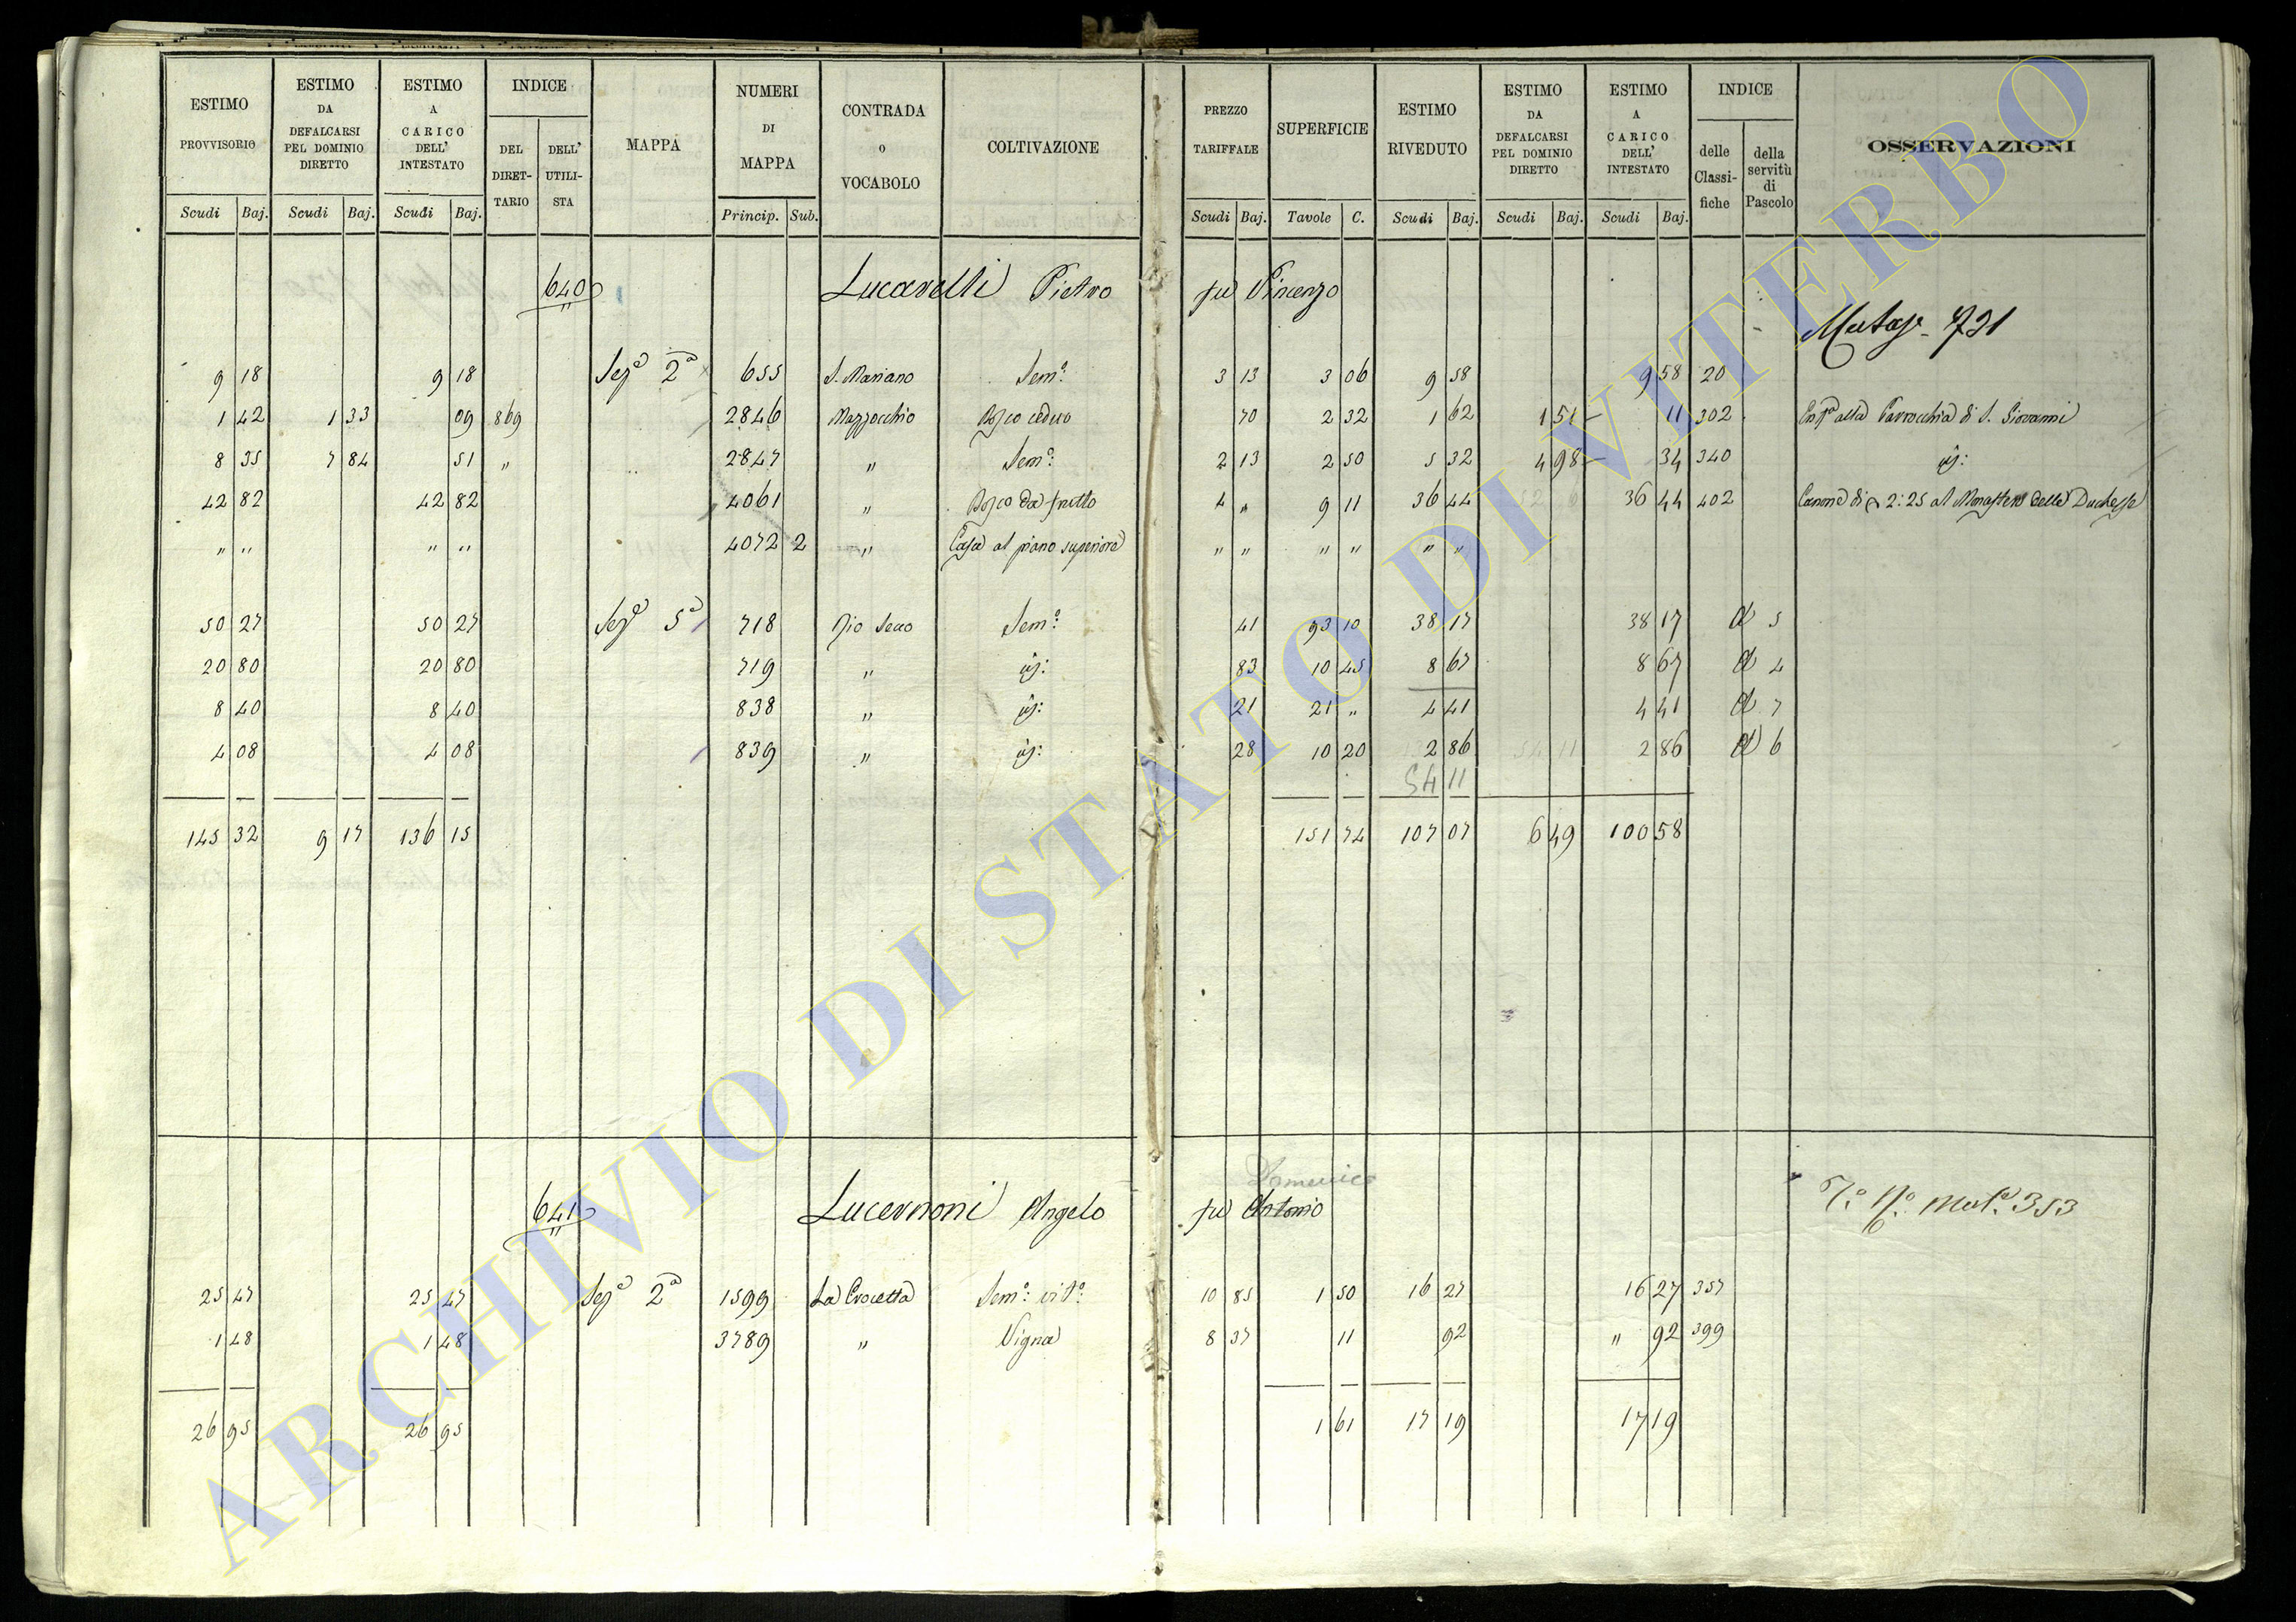 ESTIMO PROVVISORIO Scudi Baj. ESTIMO DA DEFALCARSI PEL DOMINIO DIRETTO Scudi Baj. ESTIMO A CARICO DELL' INTESTATO Scudi Baj. INDICE DEL DIRET- TARIO DELL' UTILI- STA MAPPA NUMERI DI MAPPA Princip. Sub. CONTRADA O VOCABOLO COLTIVAZIONE PREZZO TARIFFALE Scudi Baj. SUPERFICIE Tavole C. ESTIMO RIVEDUTO Scudi Baj. ESTIMO DA DEFALCARSI PEL DOMINIO DIRETTO Scudi Baj. ESTIMO A CARICO DELL' INTESTATO Scudi Baj. INDICE delle Classi- fiche della servitù di Pascolo OSSERVAZIONI
640 Lucarelli Pietro fu Vincenzo
Mutaz. 721
9 18 9 18 Sez.e 2a 655 S. Mariano Sem.o 3 13 3 06 9 58 9 58 20
1 42 1 33 09 869 2846 Mazzocchio Bosco ceduo 70 2 32 1 62 1 51 11 302 Enf.a alla Parrocchia di S. Giovanni
8 35 7 84 51 " 2847 " Sem.o 2 13 2 50 5 32 4 98 34 340 id:
42 82 42 82 4061 " Bosco da frutto 4 " 9 11 36 44 36 44 402 Canone di 2:25 al Monastero delle Duchesse
" " " " 4072 2 " Casa al piano superiore " " " " " "
50 27 50 27 Sez.e 5a 718 Rio Secco Sem.o 41 93 10 38 17 38 17 A 5
20 80 20 80 719 " id: 83 10 45 8 67 8 67 A 4
8 40 8 40 838 " id: 21 21 " 4 41 4 41 A 7
4 08 4 08 839 " id: 28 10 20 2 86 2 86 A 6
54 11
145 32 9 17 136 15 151 74 107 07 6 49 100 58
Domenico
641 Lucernoni Angelo fu Antonio
Mut. 353
25 47 25 47 Sez.e 2a 1599 La Crocetta Sem.o vit.o 10 85 1 50 16 27 16 27 357
1 48 1 48 3789 " Vigna 8 37 11 92 " 92 399
26 95 26 95 1 61 17 19 17 19
ARCHIVIO DI STATO DI VITERBO